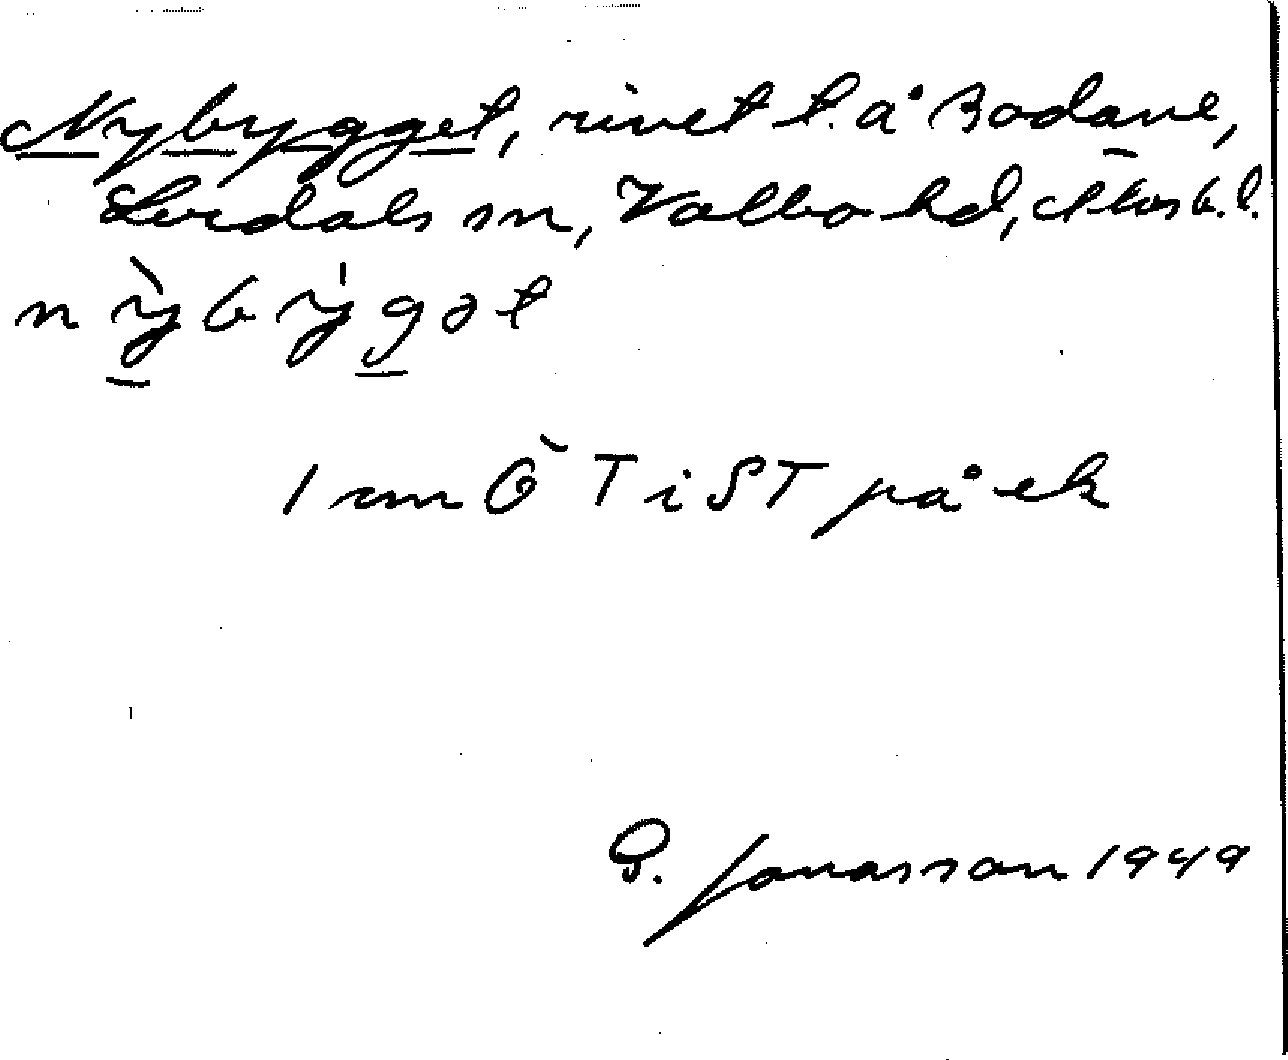 Nybygget, rivet t. å Bodane,
Lerdals sn, Valbo hd, Älvsb. l.
nỳbýgət
1 cm Ö T i ST på ek
G. Jonasson 1949